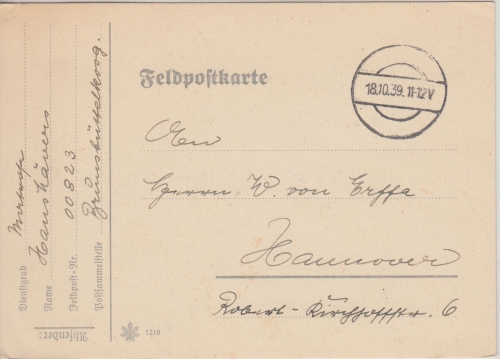 Feldpostkarte
18.10.39. 11-12V
An
Herrn W. von Erffa
Hannover
Robert-Kirchhoffstr. 6
Dienstgrad Matrose
Name Hans Hävers
Feldpost-Nr. 00823
Postsammelstelle Brunsbüttelkoog.
Absender:
1210